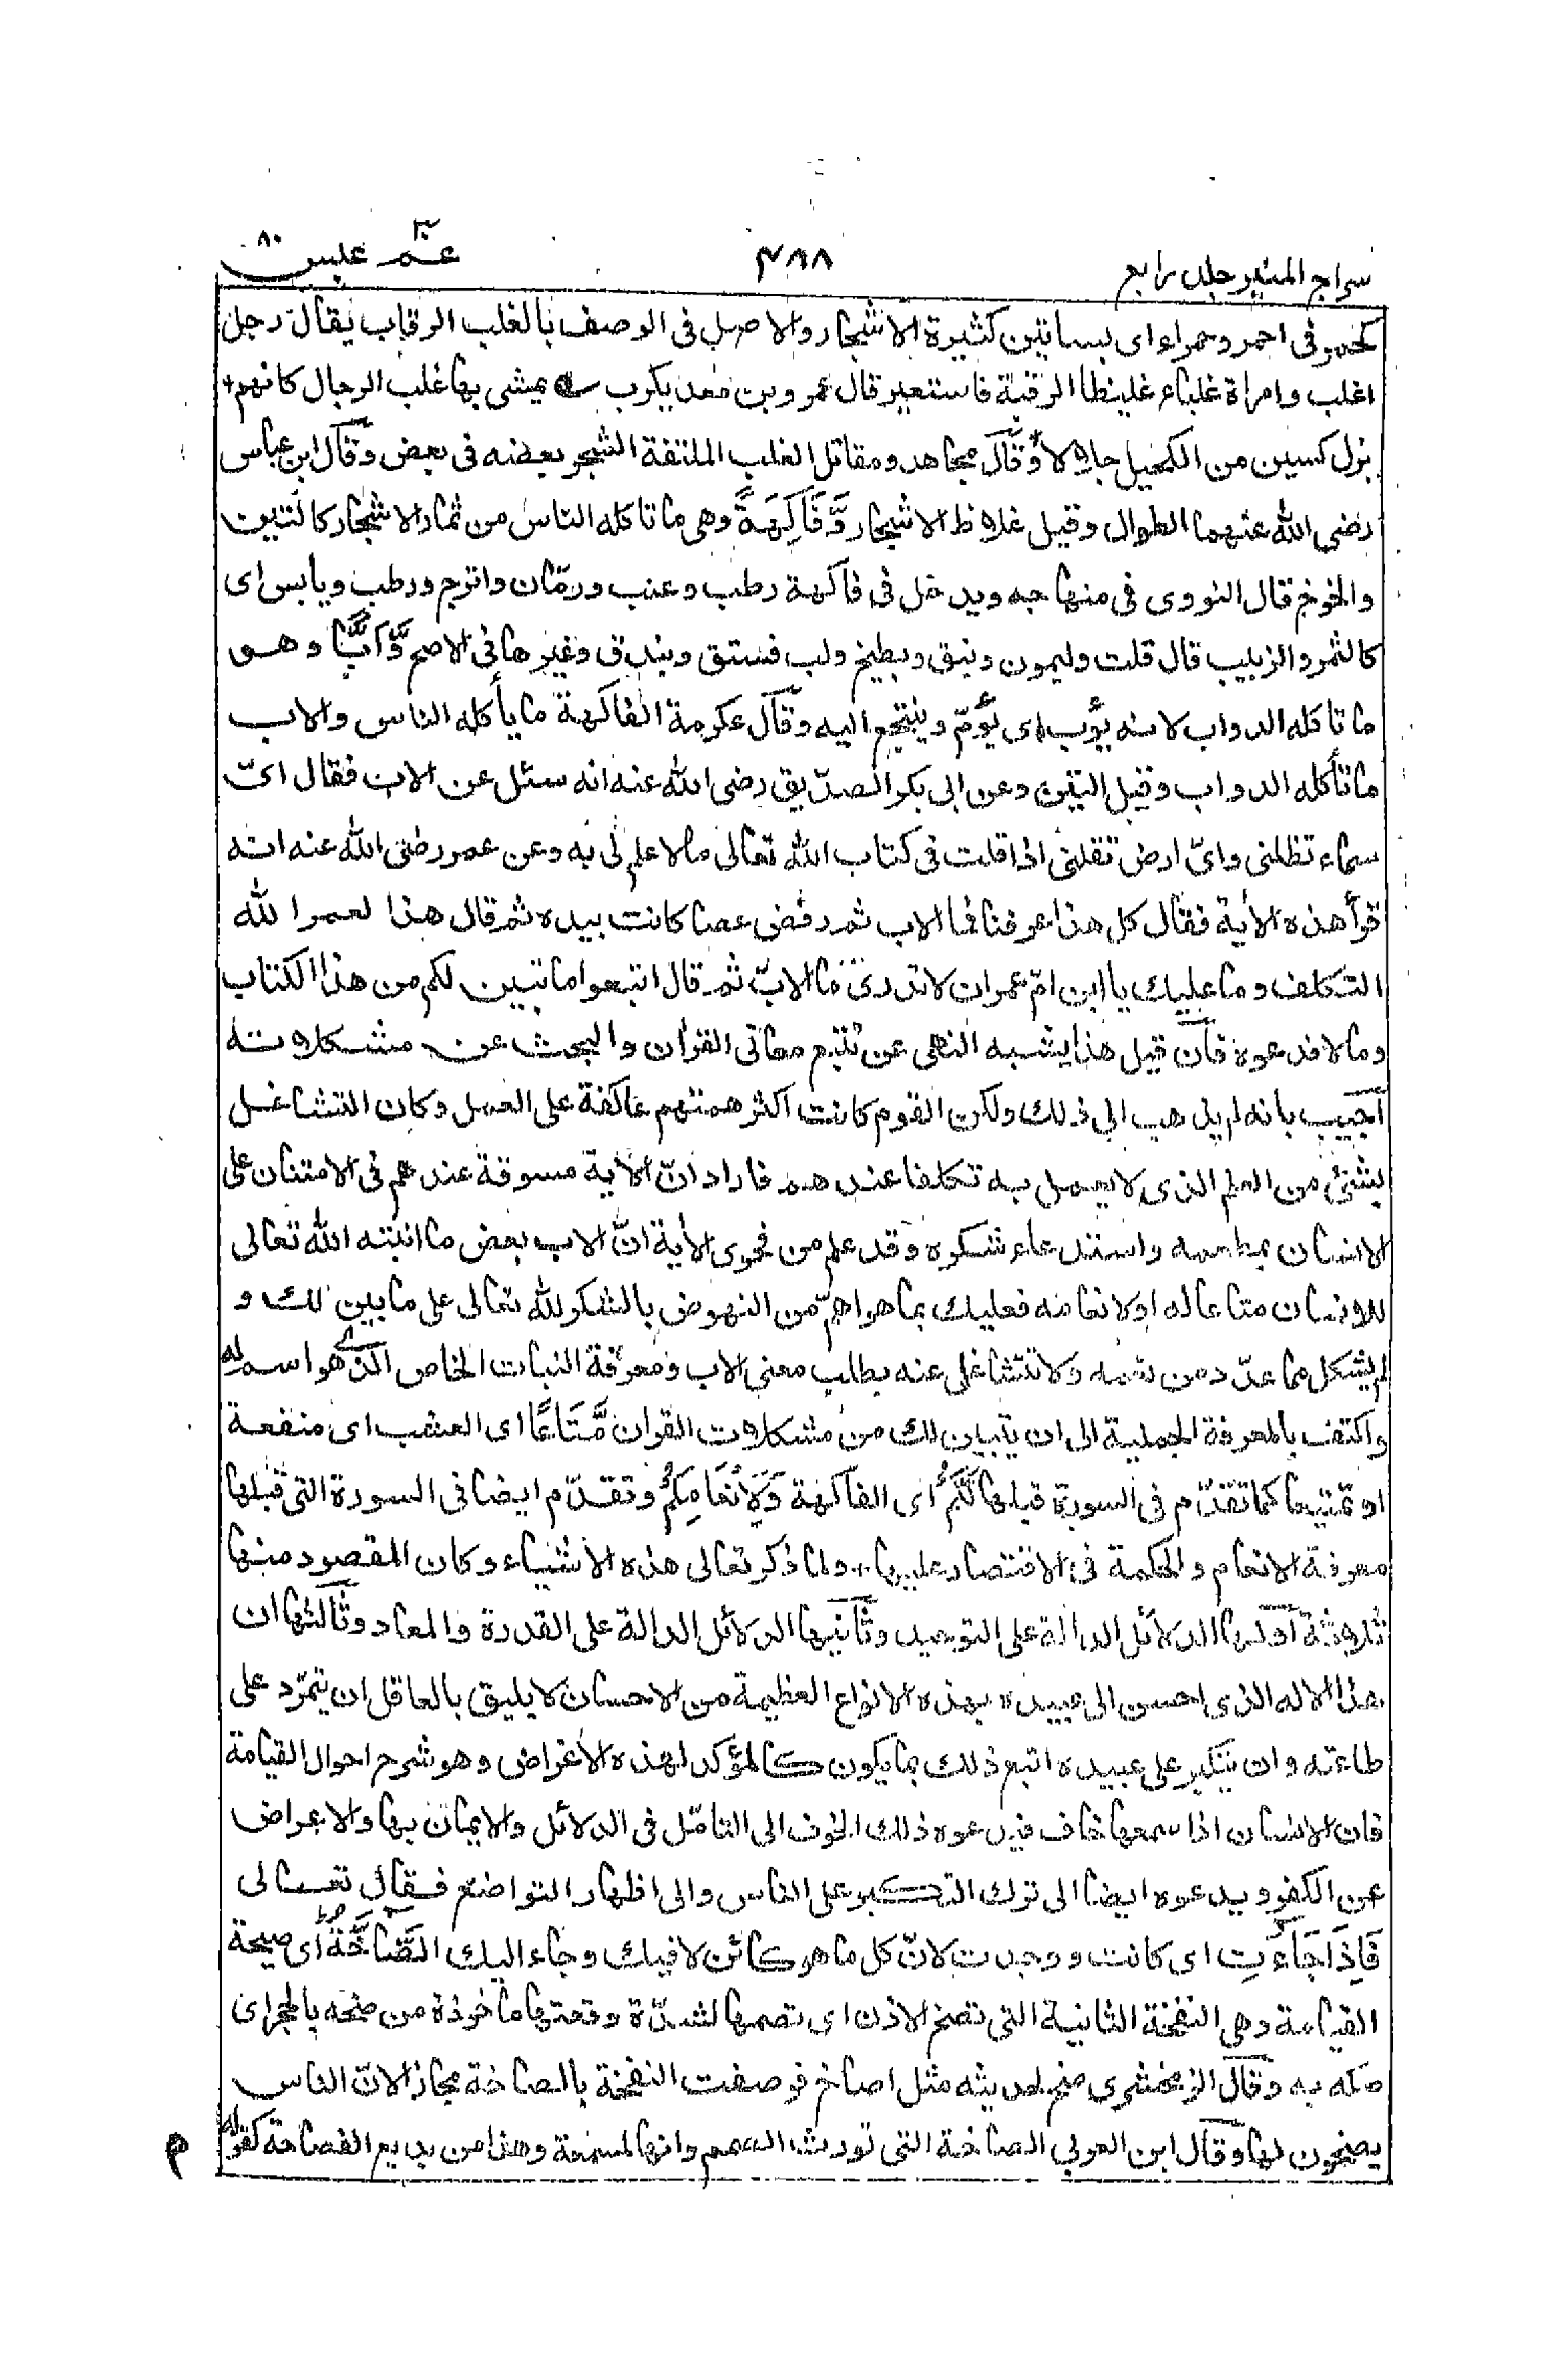 سراج المنير جلد رابع ٤٨٨ عمّ ٣٠ عبس ٨٠
كحمر فى احمر وحمراء اى بساتين كثيرة الاشجار والاصل فى الوصف بالغلب الرقاب يقال رجل
اغلب وامراة غلباء غليظا الرقبة فاستعير قال عمرو بن معد يكرب يمشى بها غلب الرجال كانهم
بزل كسين من الكحيل جلالا وقال مجاهد ومقاتل الغلب الملتفة الشجر بعضه فى بعض وقال ابن عباس
رضى الله عنهما الطوال وقيل غلاظ الاشجار وَّفَاكِهَةً وهى ما تاكله الناس من ثمار الاشجار كالتين
والخوخ قال النووى فى منهاجه ويدخل فى فاكهة رطب وعنب ورمّان واترج ورطب ويابس اى
كالتمر والزبيب قال قلت وليمون ونبق وبطيخ ولب فستق وبندق وغيرها فى الاصح وَّاَبًّا وهو
ما تاكله الدواب لانه يؤب اى يؤمّ وينتجع اليه وقال عكرمة الفاكهة ما يأكله الناس والاب
ما تأكله الدواب وقيل التبن وعن ابى بكر الصدّيق رضى الله عنه انه سئل عن الاب فقال اىّ
سماء تظلنى واىّ ارض تقلنى اذا قلت فى كتاب الله تعالى ما لا علم لى به وعن عمر رضى الله عنه انه
قرأ هذه الأية فقال كل هذا عرفنا فما الاب ثم رفض عصا كانت بيده ثم قال هذا لعمر الله
التكلف وما عليك يا ابن امّ عمران لا تدرى ما الابّ ثم قال اتبعوا ما تبين لكم من هذا الكتاب
وما لا فدعوه فان قيل هذا يشبه النهى عن تتبع معانى القران والبحث عن مشكلاته
اجيب بانه لم يذهب الى ذلك ولكن القوم كانت اكثر همتهم عاكفة على العمل وكان التشاغل
بشئ من العلم الذى لا يعمل به تكلفا عندهم فاراد انّ الأية مسوقة عندهم فى الامتنان على
الانسان بمطعمه واستدعاء شكره وقد علم من فحوى الأية انّ الاب بعض ما انبته الله تعالى
للانسان متاعا له او لانعامه فعليك بما هو اهمّ من النهوض بالشكر لله تعالى على ما بين لك و
لم يشكل مما عدّد من نعمه ولا تتشاغل عنه بطلب معنى الاب ومعرفة النبات الخاص الذى هو اسم له
واكتف بالمعرفة الجملية الى ان يتبين لك من مشكلات القران مَّتَاعًا اى العشب اى منفعة
او تمتيعا كما تقدّم فى السورة قبلها لَّكُمْ اى الفاكهة وَلِاَنْعَامِكُمْ وتقدّم ايضا فى السورة التى قبلها
معرفة الانعام والحكمة فى الاقتصار عليها ولما ذكر تعالى هذه الاشياء وكان المقصود منها
ثلاثة اولها الدلائل الدالة على التوحيد وثانيها الدلائل الدالة على القدرة والمعاد وثالثها ان
هذا الاله الذى احسن الى عبيده بهذه الانواع العظيمة من الاحسان لا يليق بالعاقل ان يتمرّد على
طاعته وان يتكبر على عبيده اتبع ذلك بما يكون كالمؤكد لهذه الاغراض وهو شرح احوال القيامة
فان الانسان اذا سمعها خاف فيدعوه ذلك الخوف الى التامّل فى الدلائل والايمان بها والاعراض
عن الكفر ويدعوه ايضا الى ترك التكبر على الناس والى اظهار التواضع فقال تعالى
فَاِذَا جَآءَتِ اى كانت ووجدت لانّ كل ما هو كائن لاقيك وجاء اليك الصَّآخَّةُ اى صيحة
القيامة وهى النفخة الثانية التى تصخ الاذن اى تصمها لشدّة وقعتها ماخوذة من صخه بالحجر اى
صكه به وقال الزمخشرى صخ لحديثه مثل اصاخ فوصفت النفخة بالصاخة مجاز الانّ الناس
يصخون لها وقال ابن العربى الصاخة التى تورث الصمم وانها لمسمعة وهذا من بديع الفصاحة كقوله
م